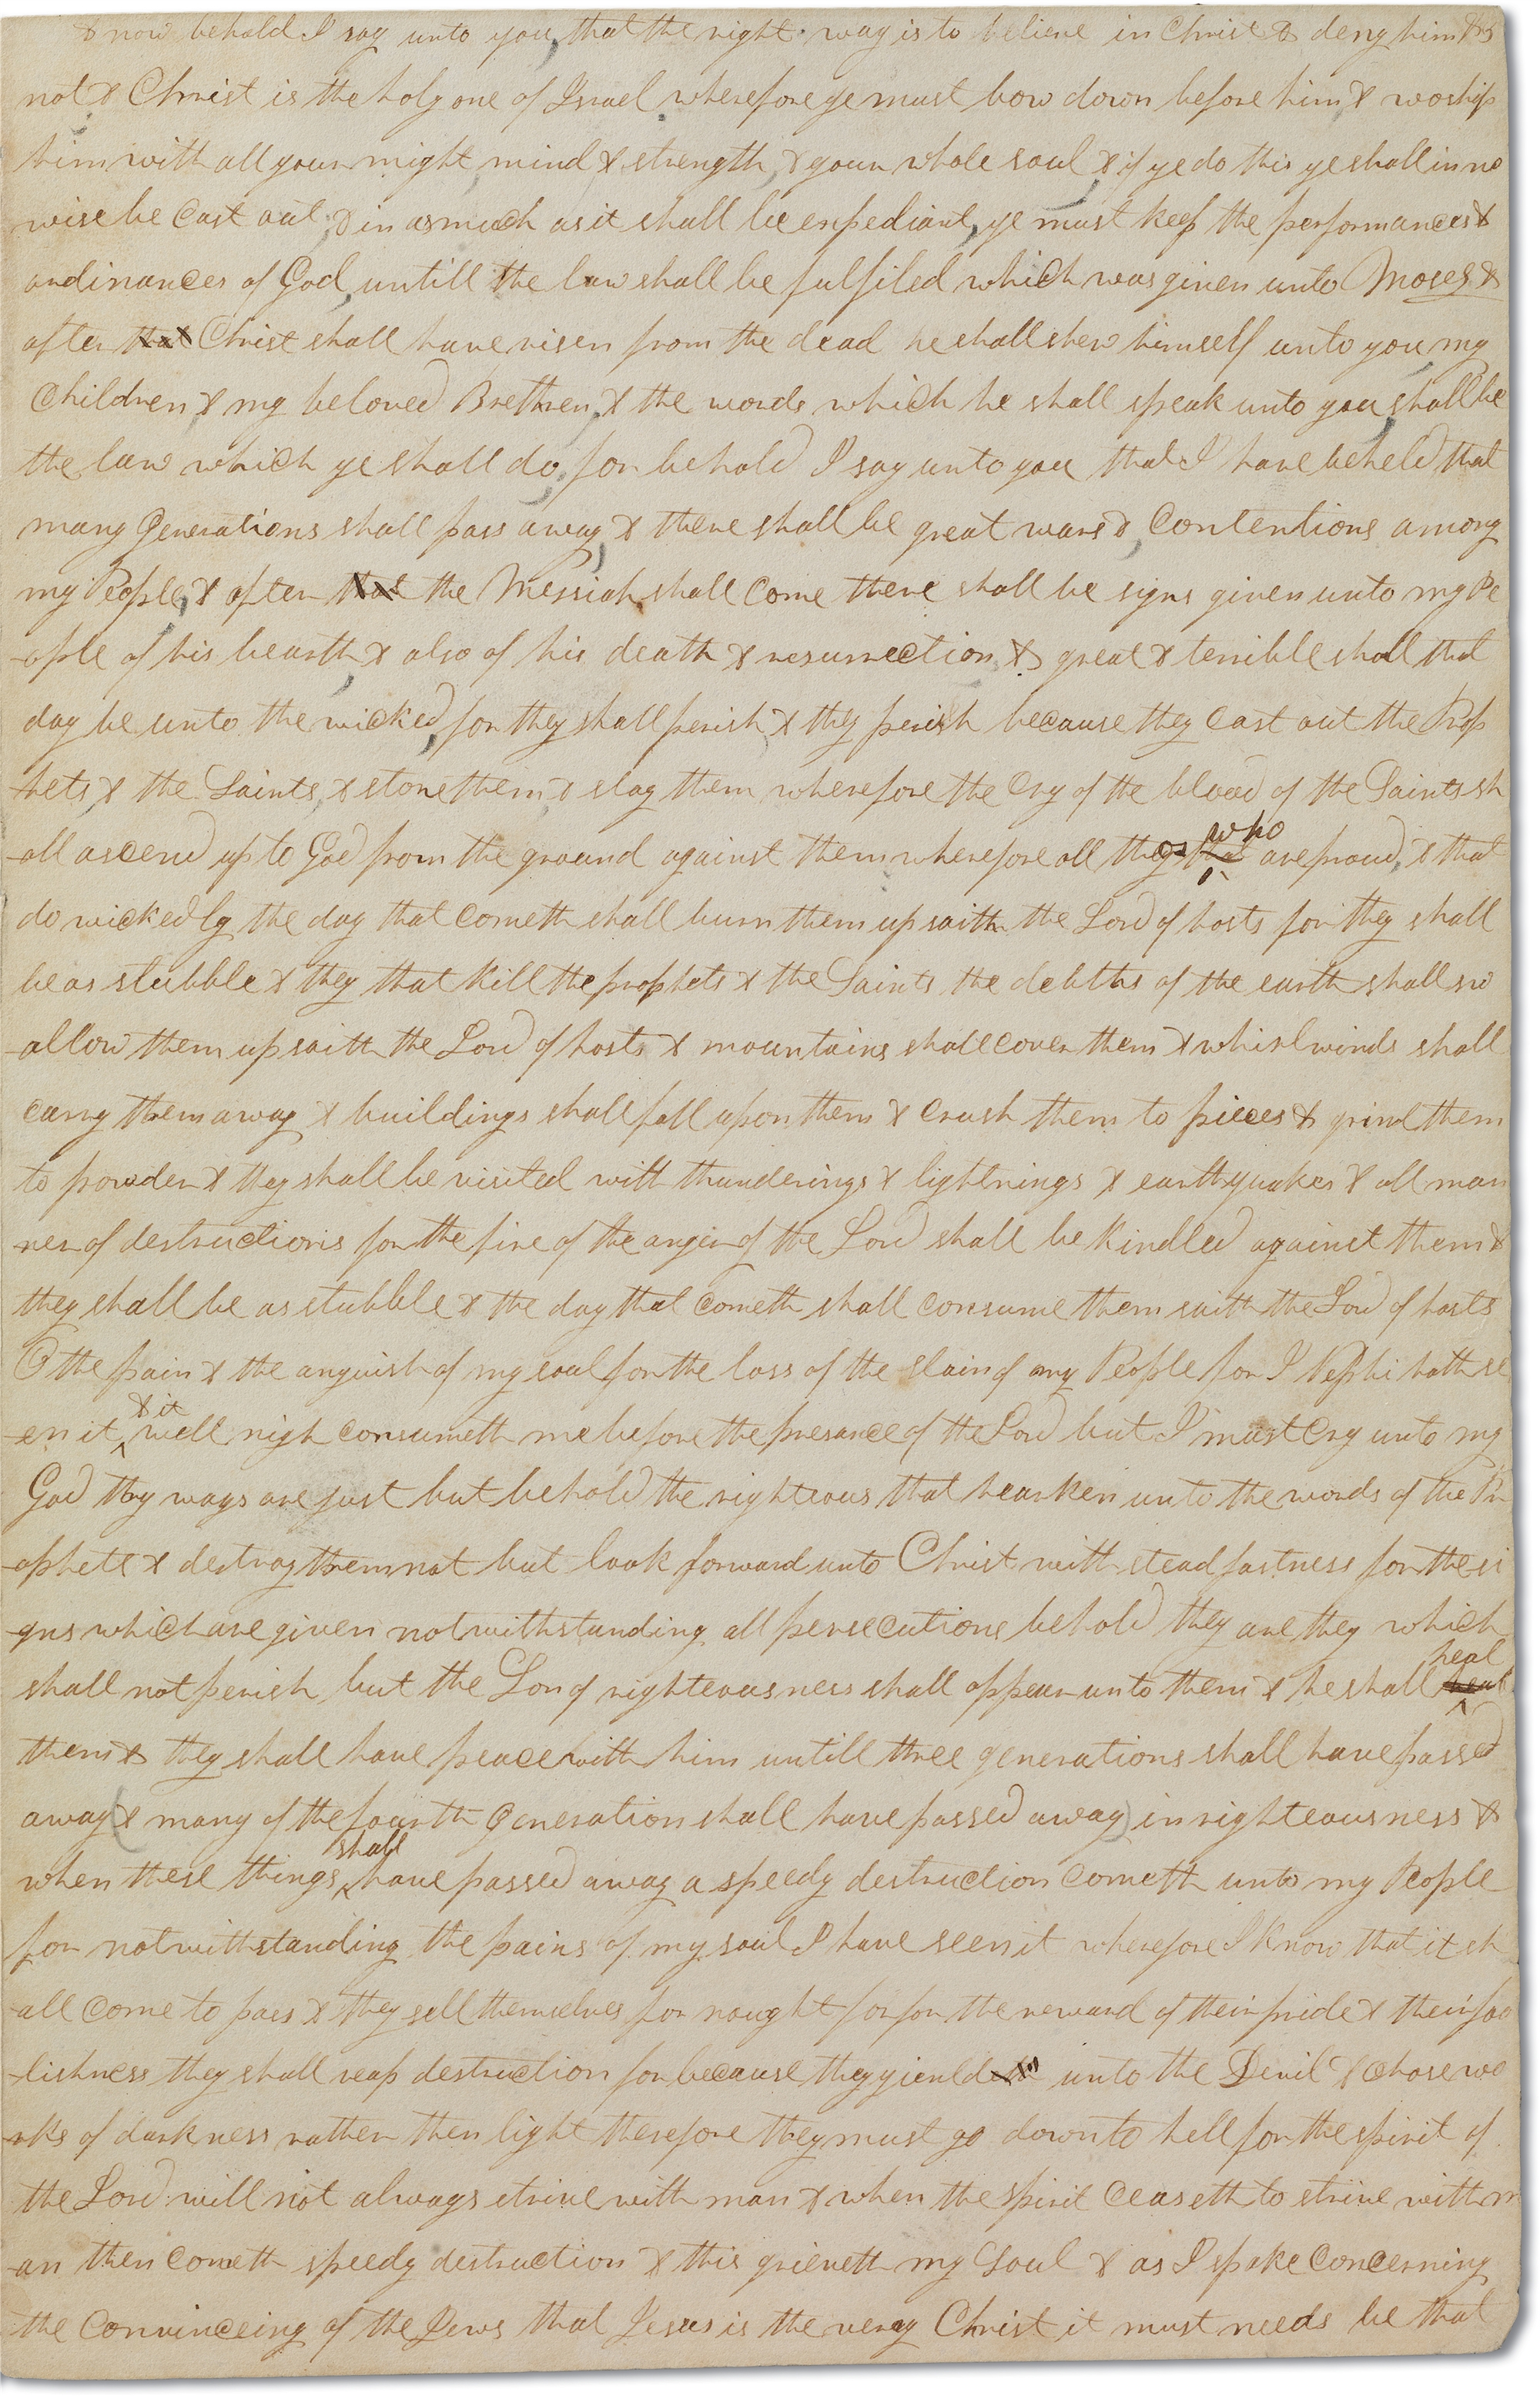 & now behold I say unto you, that the right way is to believe in Christ & deny him
not & Christ is the holy one of Israel wherefore ye must bow down before him, & worship
him with all your might, mind & strength, & your whole soul, & if ye do this ye shall in no
wise be Cast out, & in as much as it shall be expediant, ye must keep the performances &
ordinances of God, untill the law shall be fulfiled which was given unto Moses &
after that Christ shall have risen from the dead he shall shew himself unto you, my
Children, & my beloved Brethren, & the words which he shall speak unto you, shall be
the law which ye shall do, for behold I say unto you that I have beheld that
many Generations shall pass away, & there shall be great wars &, Contentions among
my People, & after that the Messiah shall Come there shall be signs given unto my Pe
-ople of his bearth, & also of his death & resurrection, & great & terrible shall that
day be unto the wicked, for they shall perish, & they perish because they Cast out the Prop
hets, & the Saints, & stone them, & slay them wherefore the Cry of the blood of the Saints sh
-all ascend up to God from the ground against them wherefore all they that who are proud, & that
do wickedly the day that Cometh shall burn them up saith the Lord of hosts for they shall
be as stubble & they that kill the prophets & the Saints the debths of the earth shall sw
-allow them up saith the Lord of hosts & mountains shall Cover them & whirlwinds shall
carry them away & buildings shall fall upon them & Crush them to pieces & grind them
to powder & they shall be visited with thunderings & lightnings & earthquakes & all man
-ner of destructions for the fire of the anger of the Lord shall be kindled against them &
they shall be as stubble & the day that cometh shall consume them saith the Lord of hosts
O the pain & the anguish of my soul for the loss of the slain of my People for I Nephi hath se
-en it & it well nigh consumeth me before the presance of the Lord but I must Cry unto my
God thy ways are just but behold the righteous that hearken unto the words of the Pr
-ophets & destroy them not but look forward unto Christ with steadfastness for the si
-gns which are given notwithstanding all persecutions behold they are they which
shall not perish but the Son of righteousness shall appear unto them & he shall heal
them & they shall have peace with him untill three generations shall have passed
away (& many of the fourth Generation shall have passed away) in righteousness &
when these things shall have passed away a speedy destruction Cometh unto my People
for notwithstanding the pains of my soul I have seen it wherefore I know that it sh
-all Come to pass & they sell themselves for nought for for the reward of their pride & their foo
-lishness they shall reap destruction for because they yieuld unto the Devil & Chose wo
-rks of darkness rather then light therefore they must go down to hell for the spirit of
the Lord will not always strive with man & when the spirit Ceaseth to strive with m
-an then Cometh speedy destruction & this grieveth my Soul & as I spake Concerning
the Convinceing of the Jews that Jesus is the veray Christ it must needs be that